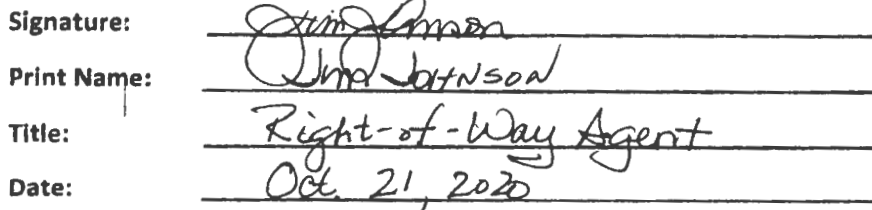 Signature: Jim Johnson
Print Name: Jim JOHNSON
Title: Right-of-Way Agent
Date: Oct. 21, 2020